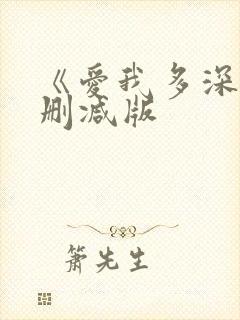 《爱我多深
删减版
箫先生